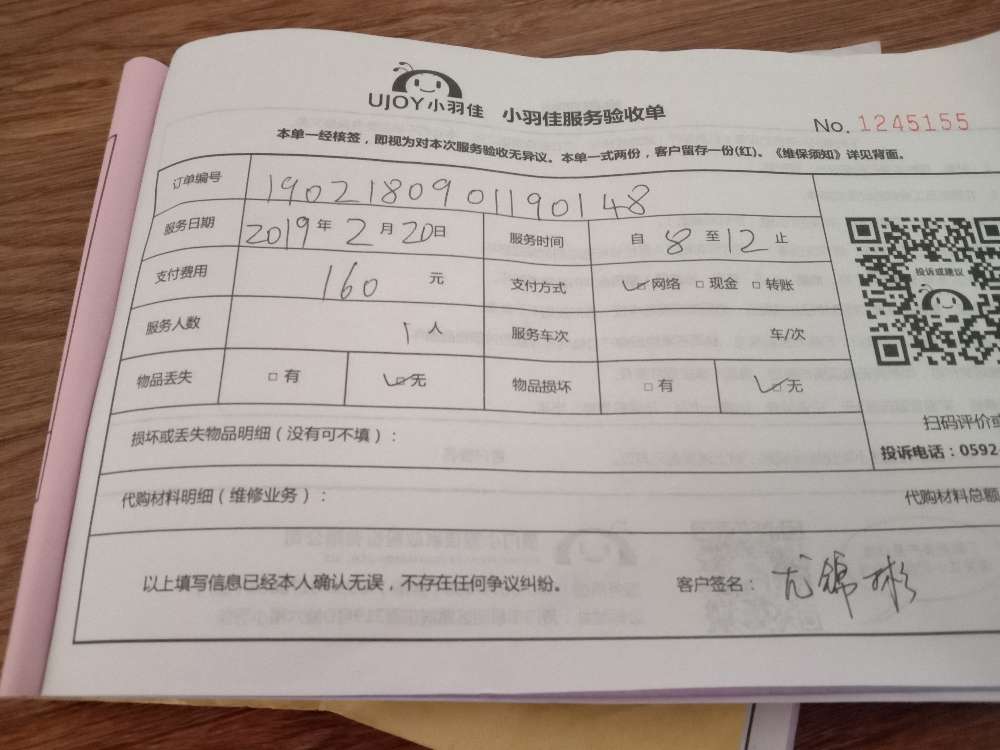 UJOY小羽佳 小羽佳服务验收单
No. 1245155
本单一经核签，即视为对本次服务验收无异议。本单一式两份，客户留存一份(红)。《维保须知》详见背面。
订单编号 1902180901190148
服务日期 2019年2月20日 服务时间 自8至12止
支付费用 160元 支付方式 ☑网络 □现金 □转账
服务人数 1人 服务车次 车/次
物品丢失 □有 ☑无 物品损坏 □有 ☑无
投诉或建议
扫码评价或
投诉电话：0592-
损坏或丢失物品明细（没有可不填）：
代购材料明细（维修业务）： 代购材料总额
以上填写信息已经本人确认无误，不存在任何争议纠纷。 客户签名：尤锦彬